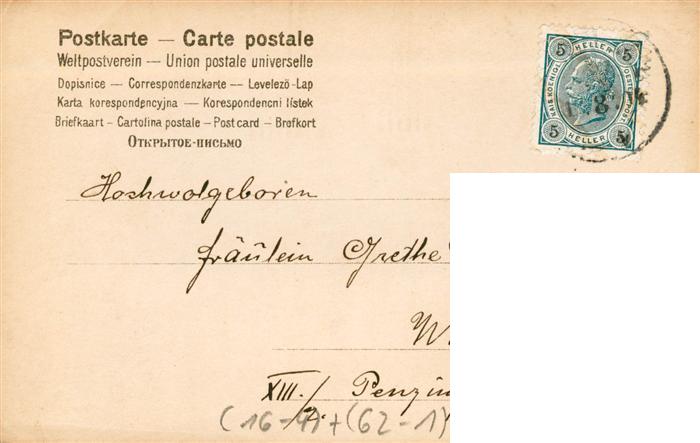 Postkarte — Carte postale
Weltpostverein — Union postale universelle
Dopisnice — Correspondenzkarte — Levelező-Lap
Karta korespondencyjna — Korespondencni lístek
Briefkaart — Cartolina postale — Post card — Brefkort
Открытое-письмо
5 HELLER 5
KAIS. KOENIGL. OESTERR. POST.
5 HELLER 5
8
Hochwolgeboren
Fräulein Grethe
W
XIII./2. Penzin
(16-9)+(62-1)